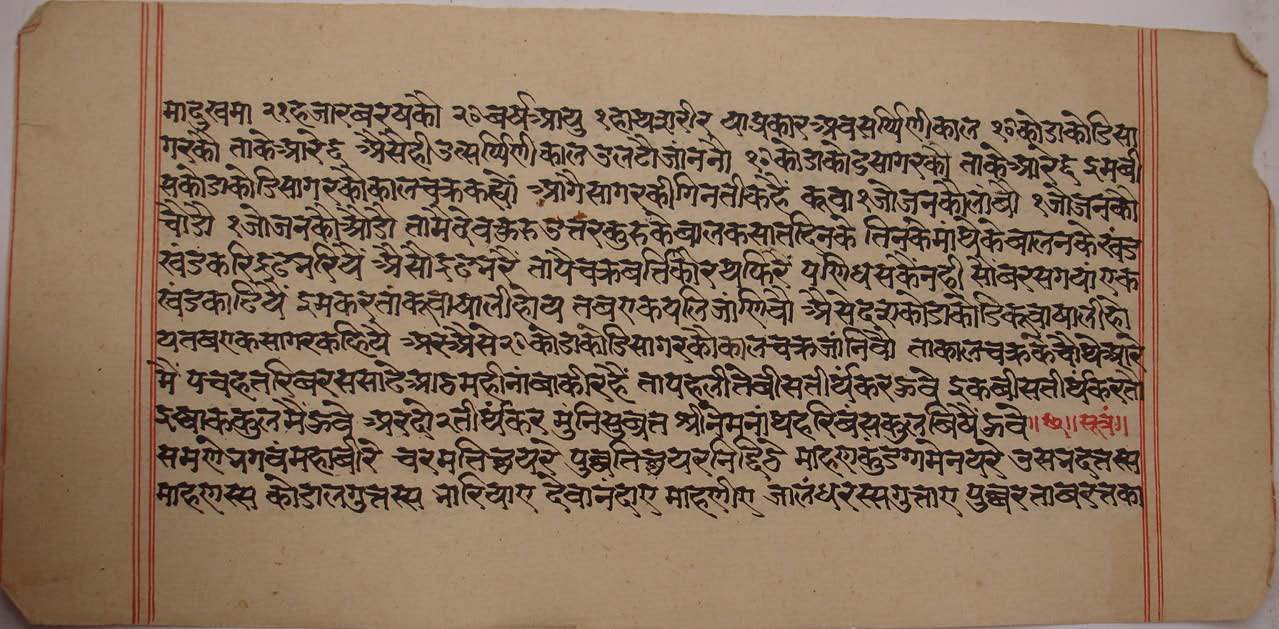 मादुखमा २१हजारबरषकौ २०वर्षआयु १हाथशरीर याप्रकारअवसर्प्पिणीकाल १०कोडाकोडिसा
गरकौ ताकेआरेइ अैसेहीउत्सर्प्पिणीकालउलटोजांननौ १०कोडाकोडसागरकौ ताकेआरइ इमबी
सकोडाकोडिसागरकौकालचक्रकह्यौ आगैसागरकीगिनतीकहैं कूवा१जोजनकौलांबौ १जोजनकौ
चौडौ १जोजनकौऔडौ तामेंदेवकुरुउत्तरकुरुकेबालकसातदिनके तिनकेमाथेकेबालनकेखंड
खंडकरिदृढभरियै अैसोदृढभरै तापैचक्रबर्तिकौरथफिरै पणिधसकैंनही सोबरसगयाएक
खंडकाढियै इमकरतांकूवोषालीहोय तबएकपलिजाणिवौ अैसेदशकोडाकोडिकूवाषालीहो
यतबएकसागरकहियै अरुअैसे२०कोडाकोडिसागरकौकालचक्रजांनिवौ ताकालचक्रकेचोथेआरे
मैं पचहतरिबरससाढेआठमहीनांबाकीरेहैं तापहलीतेवीसतीर्थंकरऊवे इकवीसतीर्थंकरतौ
इष्वाककुलमेंऊवे अरदो२तीर्थंकर मुनिसुव्रत श्रीनेमनांथहरिबंसकुलबिषैंऊवै ॥सूत्रं॥
समणेभगवंमहाबीरे चरमतिच्छयरे पुव्वतिच्छयरनिद्दिठे माहणकुंडग्गामेनयरे उसभदत्तस्स
माहणस्स कोडालगुत्तस्स भारियाए देवानंदाए माहणीए जालंधरस्सगुत्ताए पुव्वरत्ताबरत्तका